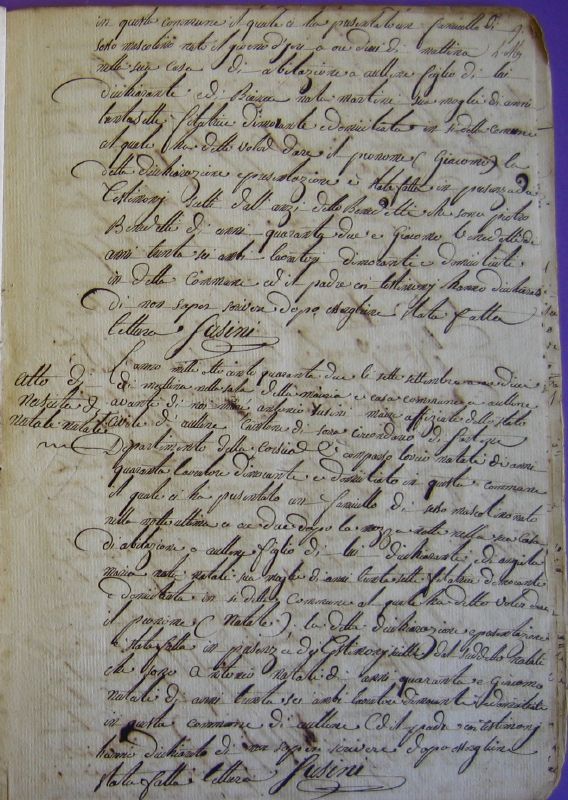 in questa commune il quale ci ha presentato un fanciullo di
sesso mascolino nato il giorno d'jeri a ore dieci di mattina
nella sua casa di abitazione a aullene figlio di lui
dichiarante e di Bianca nata martini sua moglie di anni
trentasette filatrice dimorante e domiciliata in sudetta commune
al quale ha detto voler dare il pronome (Giacomo) la
detta dichiarazione e presentazione è stata fatta in presenza di
Testimonj fatti dall' anzi detto Benedetti che sono pietro
Benedetti di anni quaranta due e Giacomo Benedetti di
anni trenta sei ambi dimoranti e domiciliati
in detta commune ed il padre con testimonj hanno dichiarato
di non saper scrivere dopo avergliene stata fatta
lettura Susini
atto di
nascita di
natale natali
L'anno mille otto cento quaranta due li sette settembre a ore dieci
di mattina nella sala della mairia e casa commune a aullene
avante di noi antonio Susini maire uffiziale dello stato
civile di aullene Cantone di sara circondario di Sartene
Dipartimento della Corsica è comparso natali di anni
quaranta lavoratore dimorante e domiciliato in questa commune
il quale ci ha presentato un fanciullo di sesso mascolino nato
nella notte ultima a ore due dopo la mezza notte nella sua casa
di abitazione a aullene figlio di lui dichiarante e di angela
maria nata natali sua moglie di anni trenta sette filatrice dimorante
domiciliata in sudetta commune al quale ha detto voler dare
il pronome (Natale) la detta dichiarazione e presentazione
è stata fatta in presenza di Testimonj fatti dal suddetto natali
che sono antonio natali di anni quaranta e Giacomo
natali di anni trenta sei ambi lavoratori dimoranti e domiciliati
in questa commune di aullene ed il padre con testimonj
hanno dichiarato di non sapere scrivere dopo avergliene
stata fatta lettura Susini